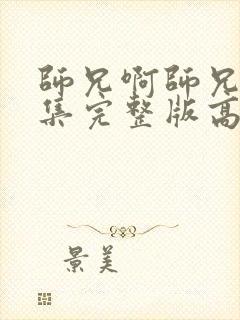 師兄啊師兄
集完整版高
景美